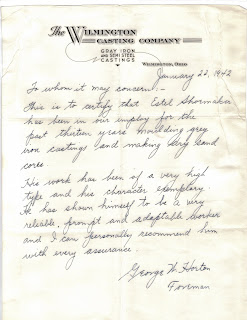 The WILMINGTON
CASTING COMPANY
GRAY IRON
AND SEMI STEEL
CASTINGS
WILMINGTON, OHIO
January 22, 1942
To whom it may concern:-
This is to certify that Estel Shoemaker
has been in our employ for the
past thirteen years moulding grey
iron castings and making dry sand
cores
His work has been of a very high
type and his character exemplary.
He has shown himself to be a very
reliable, prompt and adaptable worker
and I can personally recommend him
with every assurance.
George W. Horton
Foreman